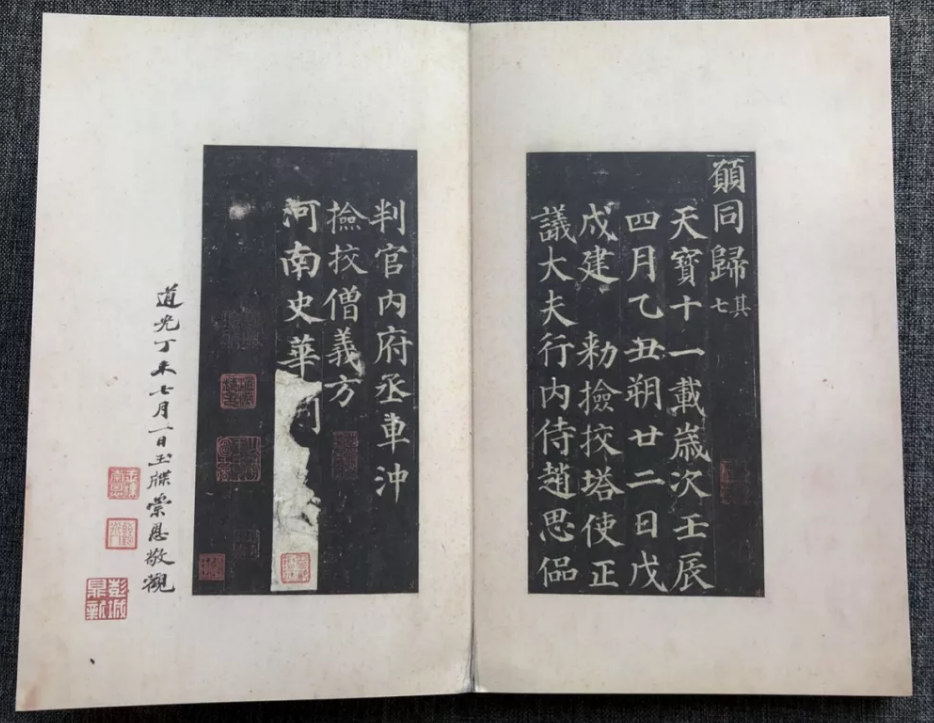 願同歸其七
天寶十一載歲次壬辰
四月乙丑朔廿二日戊
戌建 勑撿挍塔使正
議大夫行内侍趙思侃
判官内府丞車沖
撿挍僧義方
河南史華
道光丁未七月一日玉牒崇恩敬觀